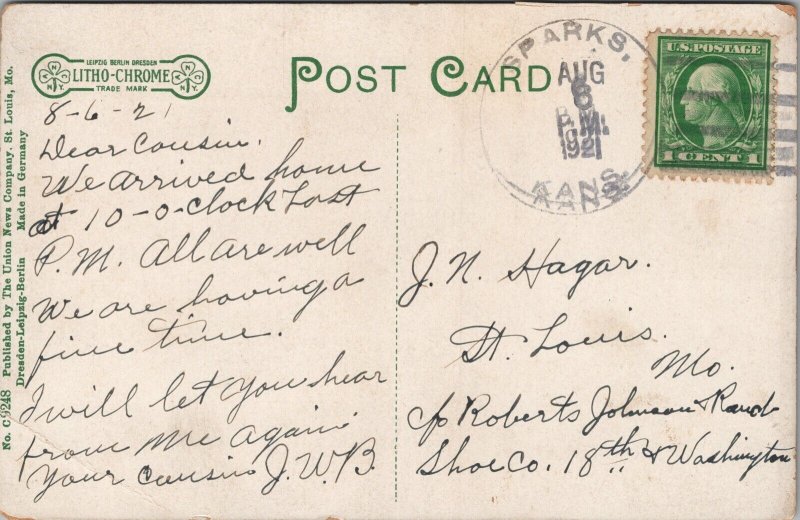 No. C9248 Published by The Union News Company, St. Louis, Mo.
Dresden-Leipzig-Berlin Made in Germany
LEIPZIG BERLIN DRESDEN
LITHO-CHROME
TRADE MARK
POST CARD
SPARKS,
AUG
6
P.M.
1921
KANS.
U.S. POSTAGE
1 CENT 1
8-6-21
Dear Cousin.
We arrived home
at 10-o-clock Last
P.M. All are well
We are having a
fine time.
I will let you hear
from me again
Your Cousin J.W.B.
J. N. Hagar.
St. Louis.
Mo.
c/o Roberts Johnson & Rand
Shoe Co. 18th & Washington